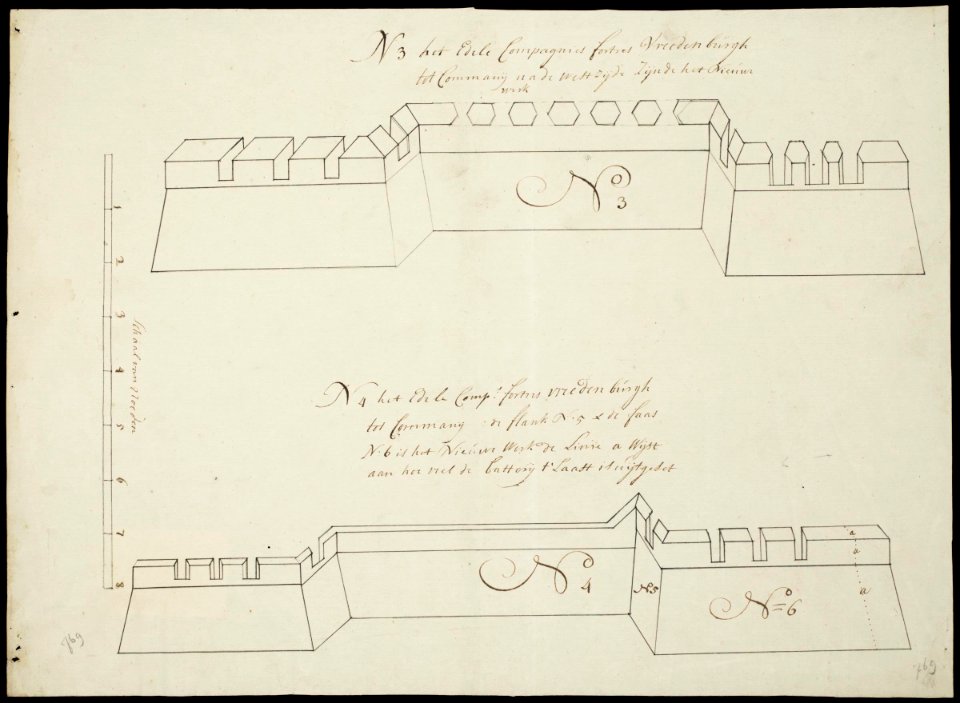 N 3 het Edele Compagnies fortres Vreedenburgh
tot Commany na de West Zyde Zijnde het Nieuwe
werk
No 3
1
2
3
4
5
6
7
8
Schaal van Roeden
N 4 het Edele Comp.s fortres vreedenburgh
tot Commany : de flank N. 5 & de faas
N. 6 is het Nieuwe Werk de Linie a Wyst
aan hoe veel de battery t' Laast is uijtgeset
No 4
No 5
No 6
a
a
a
769
769